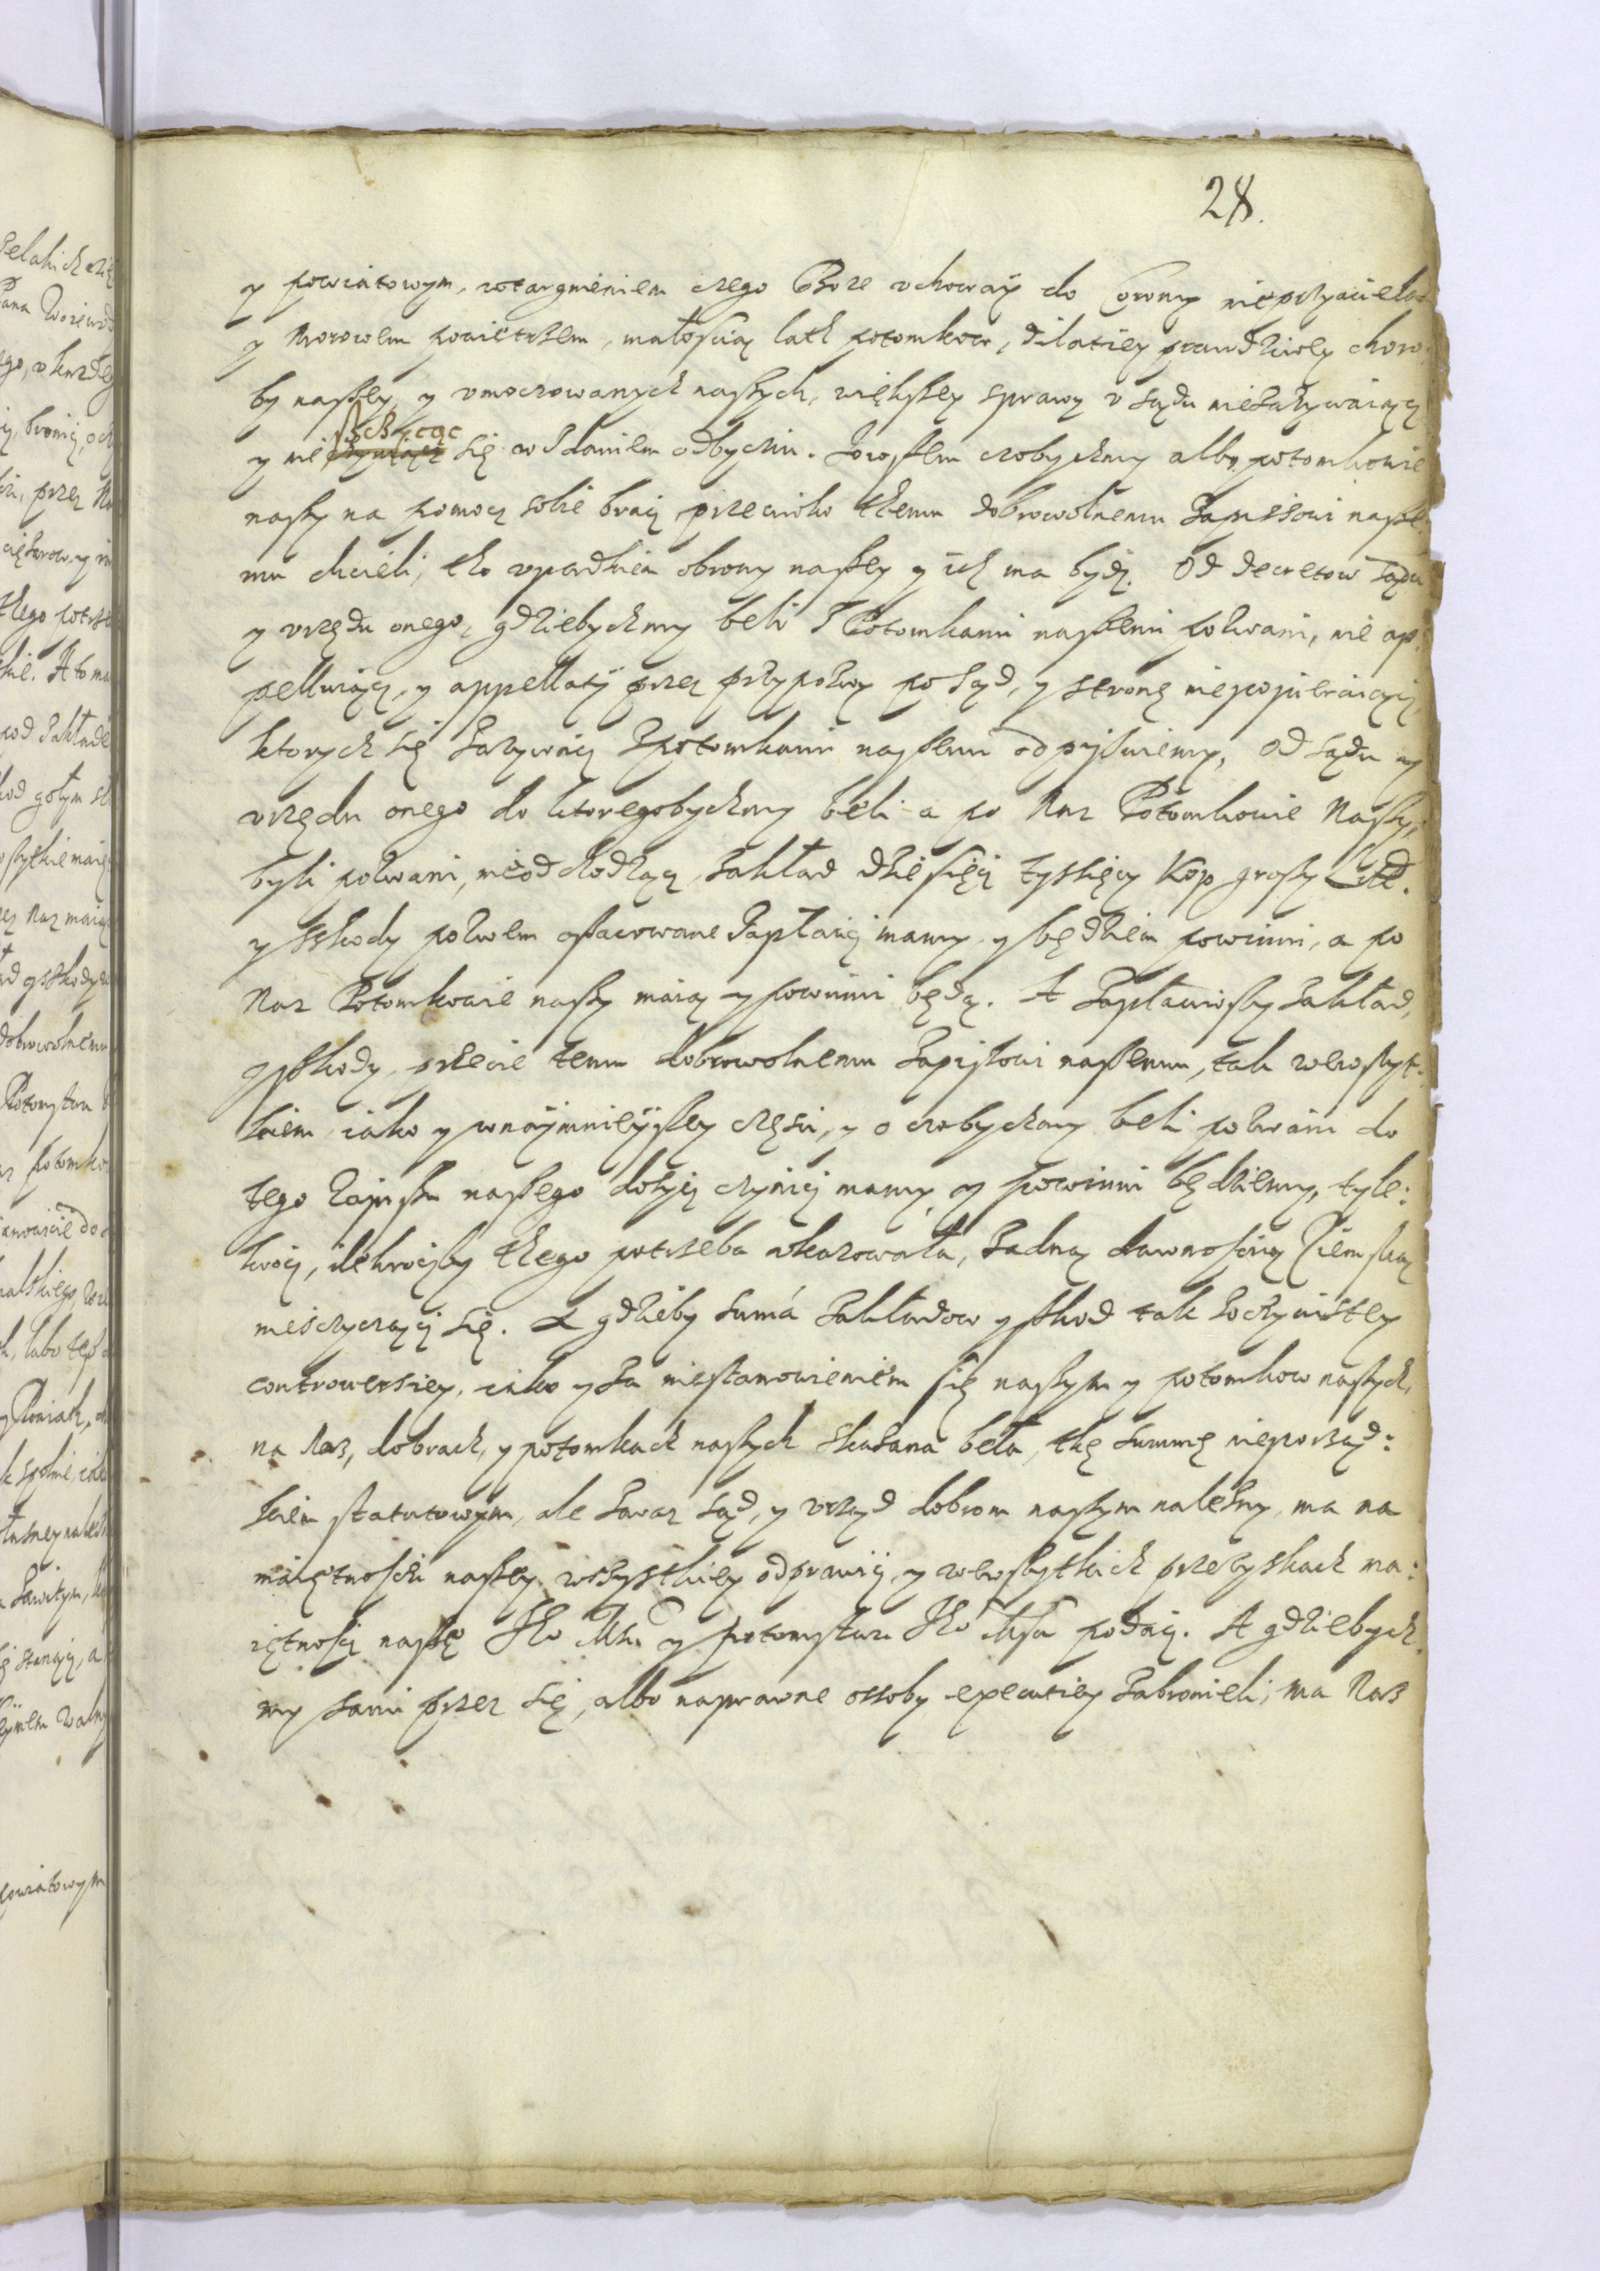 28.
y powiatowym, wtargnieniem czego Boze vchoway do Corony nieprzyaciela
y Morowem powietrzem, małoscią lath potomkow, dilatiey prawdziwey choro
by naszey, y vmocowanych naszych, większey sprawy v sądu niezazywaiący
y nie szczycąc się wzdaniem odbyciu. Zowszem czobychmy albo potomkowie
naszy na pomocz sobie bracz przeciwko themu dobrowolnemu Zapissowi nasze
mu chcieli, tho vpadkiem obrony naszey y ich ma bydz. Od decretow sądu
y vrzędu onego, gdziebychmy beli z Potomkami naszemi pozwani, nie ap:
pelluiącz, y appellatiy przez przypozwy po sąd, y stronę niepopieraiączi,
ktorych się zazywacz z potomkami naszemi odpisuiemy, od sądu y
vrzędu onego do ktoregobychmy beli a po Nas Potomkowie Naszy,
byli pozwani, nieodchodząc zakład dziesięcz tysięcy Kop groszy Litt.
y szkody pozwem oszacowane Zapłacicz mamy y będziem powinni, a po
Nas Potomkowie naszy maią y powinni będą. A Zapłaciwszy Zakład,
y szkody przecie temu dobrowolnemu Zapisowi naszemu, tak wewszyt:
kiem iako y wnaymnieyszey częsci, y o czobychmy beli pozwani do
tego Zapisku naszego dosycz czynicz mamy, y powinni będziemy, tyle:
krocz, ilekroczby thego potrzeba vkazowała, Zadną dawnoscią Ziemską
nieszczyczącz się. A gdzieby suma Zakładow y szkod tak z oczywistey
controwersiey, iako y za niestanowieniem się naszym y potomkow naszych,
na Nas, dobrach, y potomkach naszych skazana beła, thę summę nieporząd:
kiem statutowym, ale zaraz sąd, y vrząd dobrom naszym nalezny, ma na
maiętnosci naszey wszystkiey odprawicz, y wewszytkich przezyskach ma:
iętnoscz naszę Jego Mci y potomstwu Jego Msci podacz. A gdziebych
my sami przez się, albo naprawne ossoby executiey Zabronieli, ma Nas